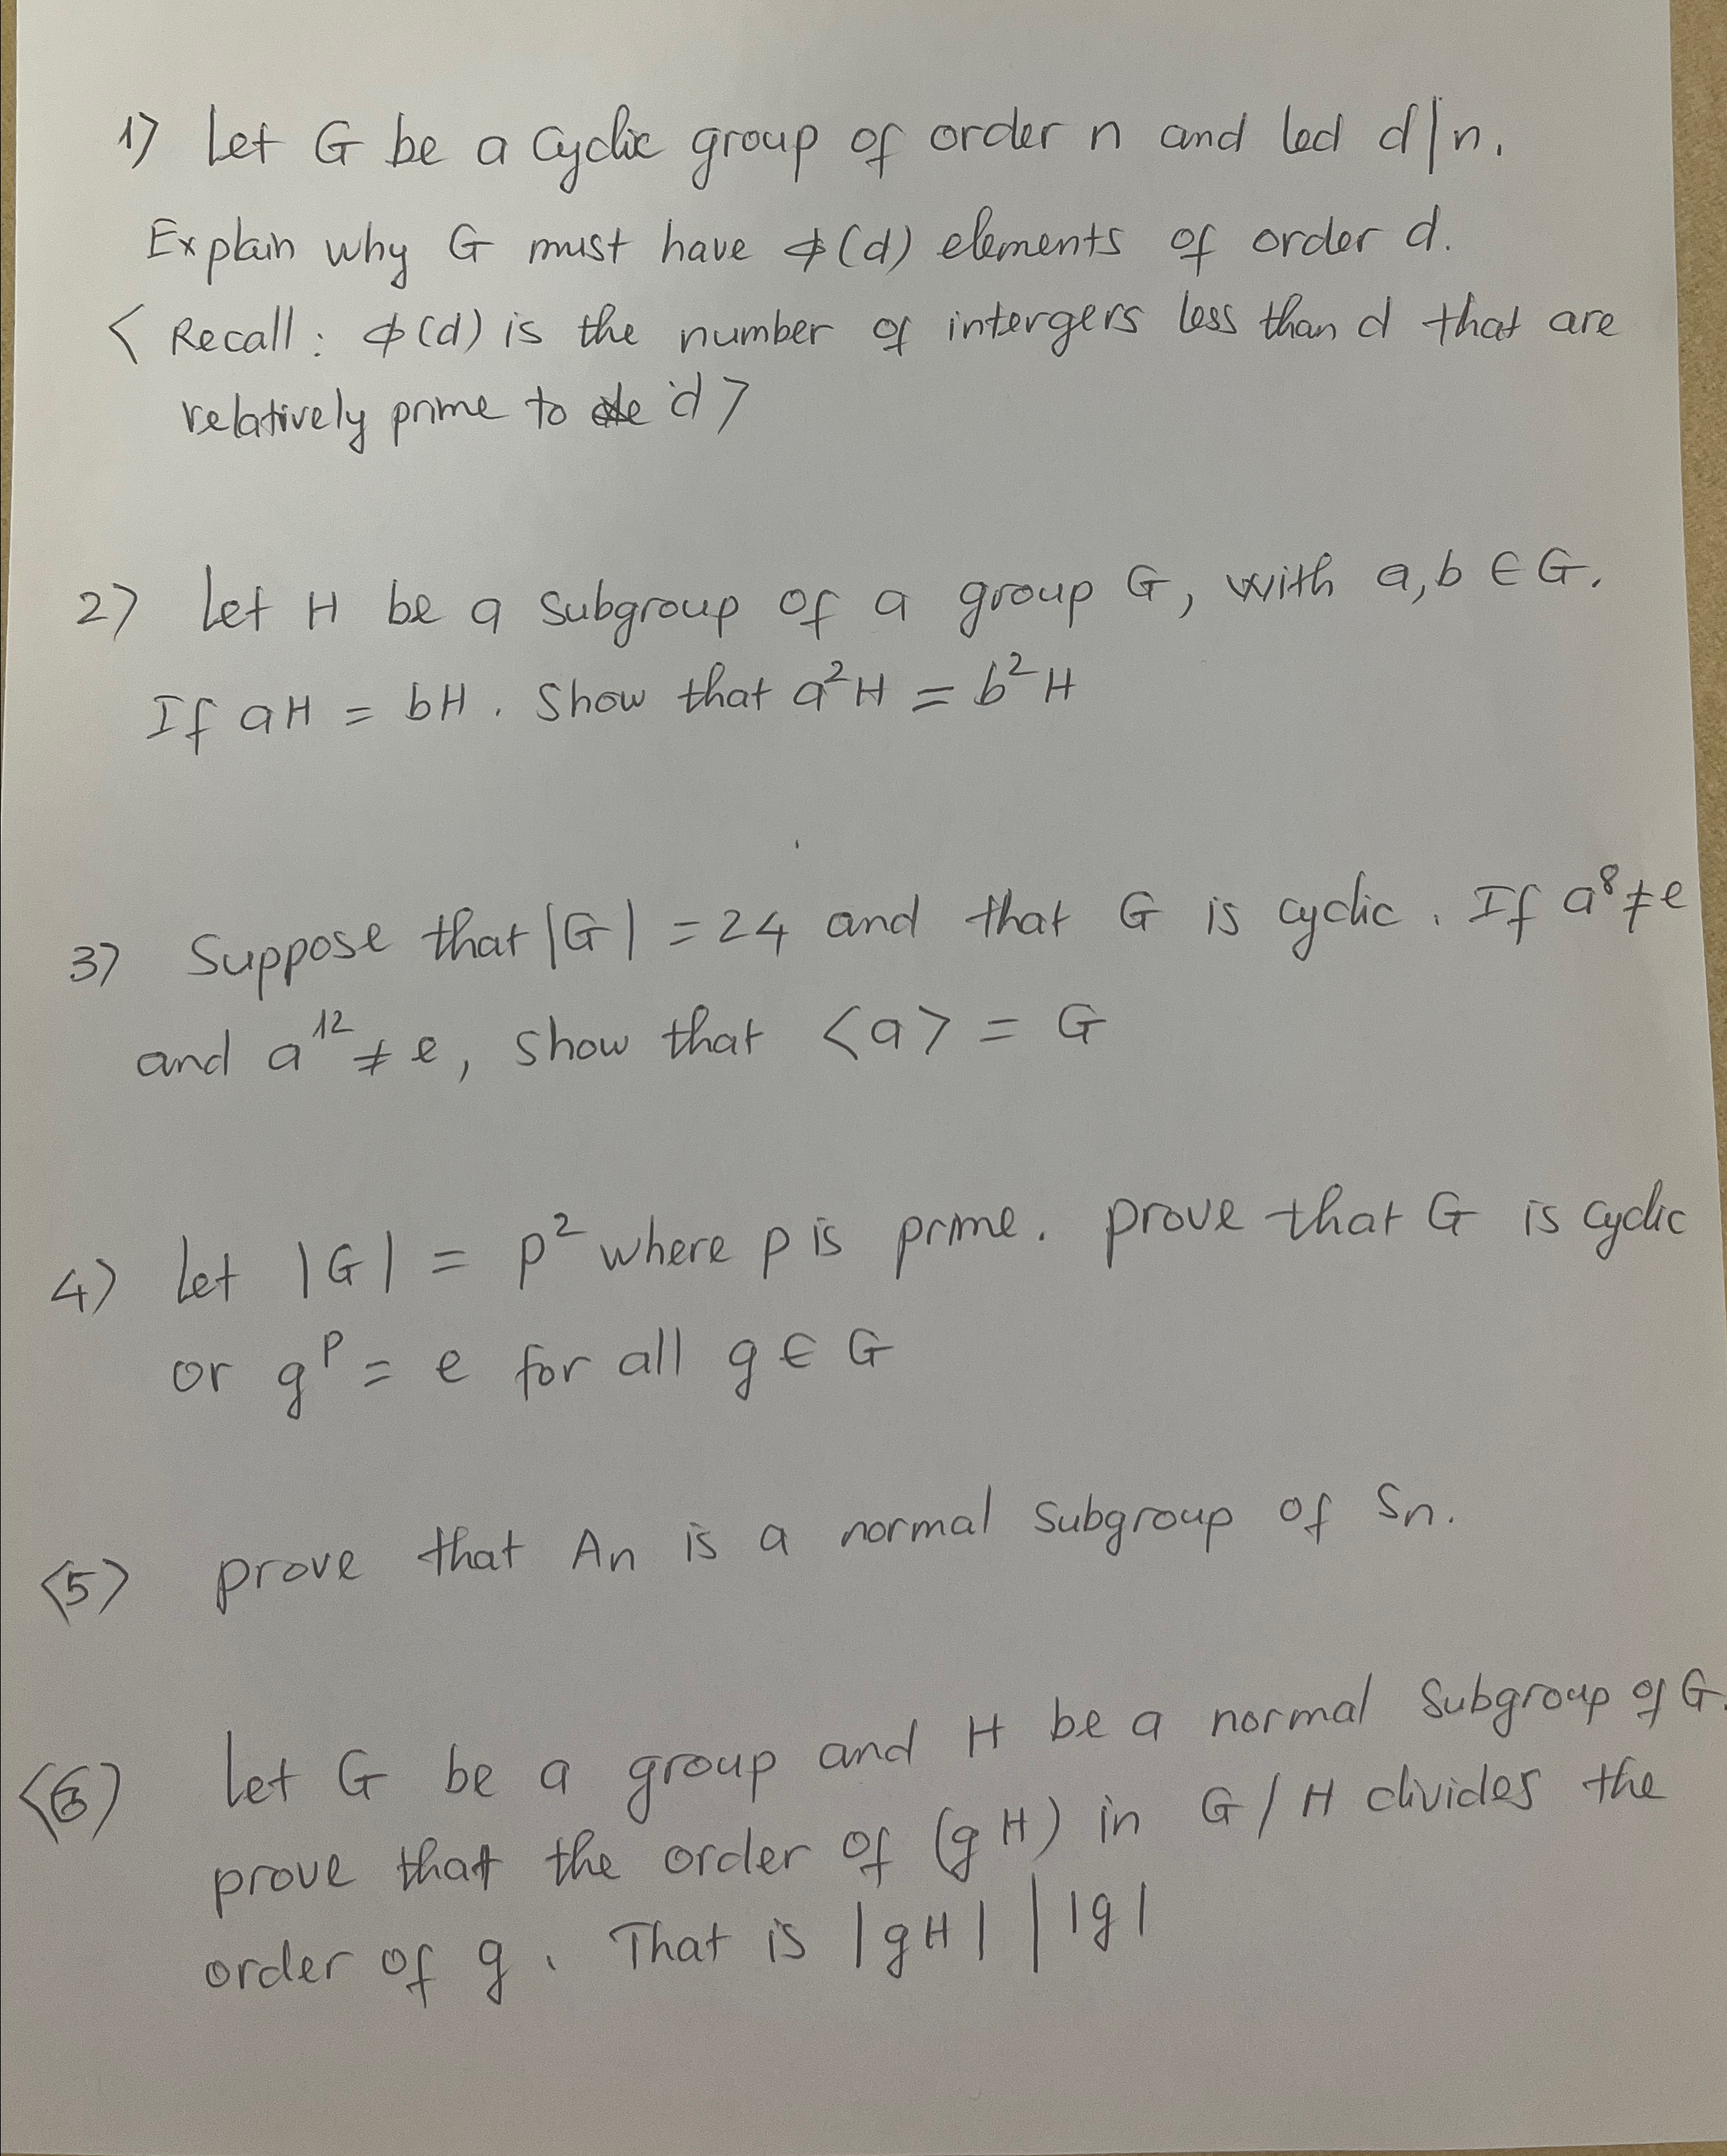 1) Let G be a cyclic group of order n and led d|n.
Explain why G must have ϕ(d) elements of order d.
< Recall : ϕ(d) is the number of intergers less than d that are
relatively prime to d >
2) Let H be a subgroup of a group G, with a,b ∈ G.
If aH = bH. Show that a²H = b²H
3) Suppose that |G| = 24 and that G is cyclic. If a⁸ ≠ e
and a¹² ≠ e, show that <a> = G
4) Let |G| = p² where p is prime. prove that G is cyclic
or gᵖ = e for all g ∈ G
<5) prove that An is a normal subgroup of Sn.
<6) Let G be a group and H be a normal subgroup of G.
prove that the order of (gH) in G/H divides the
order of g. That is |gH| | |g|